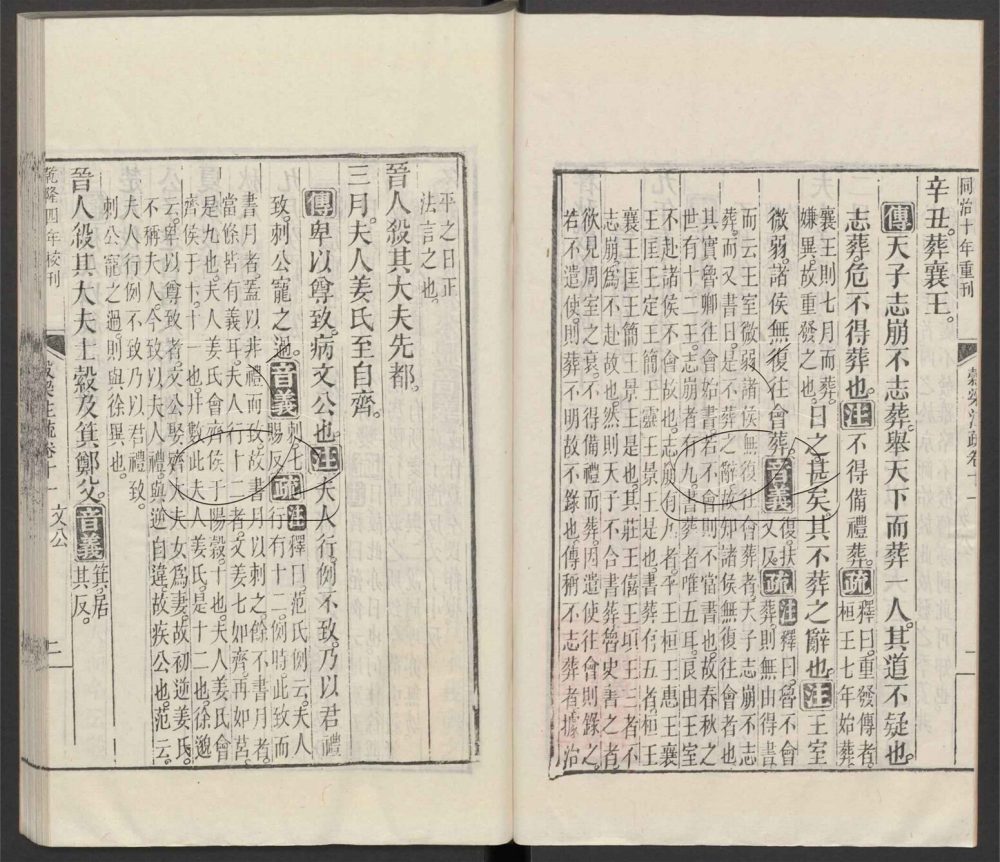 同治十年重刊
穀梁注疏卷十一
辛丑。葬襄王。
傳天子志崩不志葬。舉天下而葬一人。其道不疑也。
志葬。危不得葬也。注不得備禮葬。疏釋曰。重發傳者。桓王七年始葬。
襄王則七月而葬。嫌異。故重發之也。日之。甚矣。其不葬之辭也。注王室
微弱。諸侯無復往會葬。音義復。扶又反。疏注釋曰。魯不會葬。則無由得書
而云王室微弱。諸侯無復往會葬者。天子志崩不志
葬。而又書日。是不葬之辭。故知諸侯無復往會者也
其實魯卿往會。始書。若不會。則不當書也。故春秋之
世。有十二王。志崩者有九。書葬者唯五耳。良由王室
不赴諸侯。不會故也。志崩有九者。平王桓王惠王襄
王匡王定王簡王靈王景王是也。書葬有五者。桓王
襄王匡王簡王景王是也。其莊王僖王頃王三者不
志崩。爲不赴故也。然則天子不合書葬。魯史書之者。
欲見周室之衰。不得備禮而葬。因遣使往會則錄之。
若不遣使。則葬不明。故不錄也。傳稱不志葬者。據治
平之日。正法言之也。
晉人殺其大夫先都。
三月。夫人姜氏至自齊。
傳卑以尊致。病文公也。注夫人行。例不致。乃以君禮
致。刺公寵之過。音義刺。七賜反。疏注釋曰。范氏例云。夫人行有十二。例時。此致而
書月者。蓋以非禮而致。故書月以刺之。餘不書月者
當條皆有義耳。夫人行十二者。文姜七如齊。再如莒。
是九也。夫人姜氏會齊侯于陽穀。十也。夫人姜氏會
齊侯于卞。十一也。幷數此夫人姜氏。是十二也。徐邈
云。卑以尊致者。文公娶齊大夫女爲妻。故初逆姜氏。
不稱夫人。今致以夫人禮。與逆自違。故疾公也。范云。
夫人行例不致。乃以君禮致。
刺公寵之過。則與徐異也。
晉人殺其大夫士穀及箕鄭父。音義箕。居其反。
乾隆四年校刊
穀梁注疏卷十一 文公
二